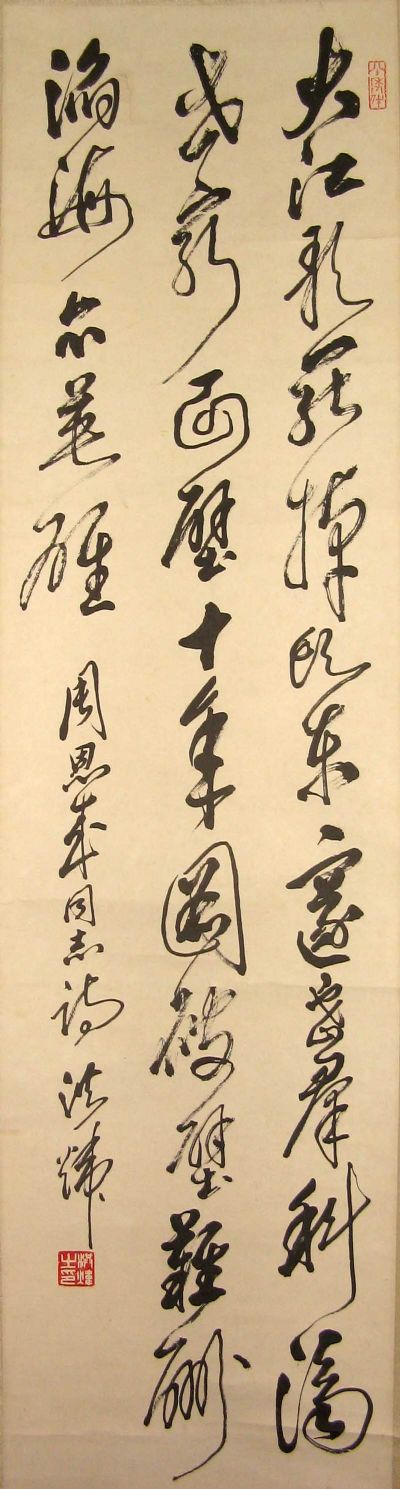 大江歌罷掉頭東邃密群科濟
世窮面壁十年圖破壁難酬
蹈海亦英雄
周恩來同志詩 洪